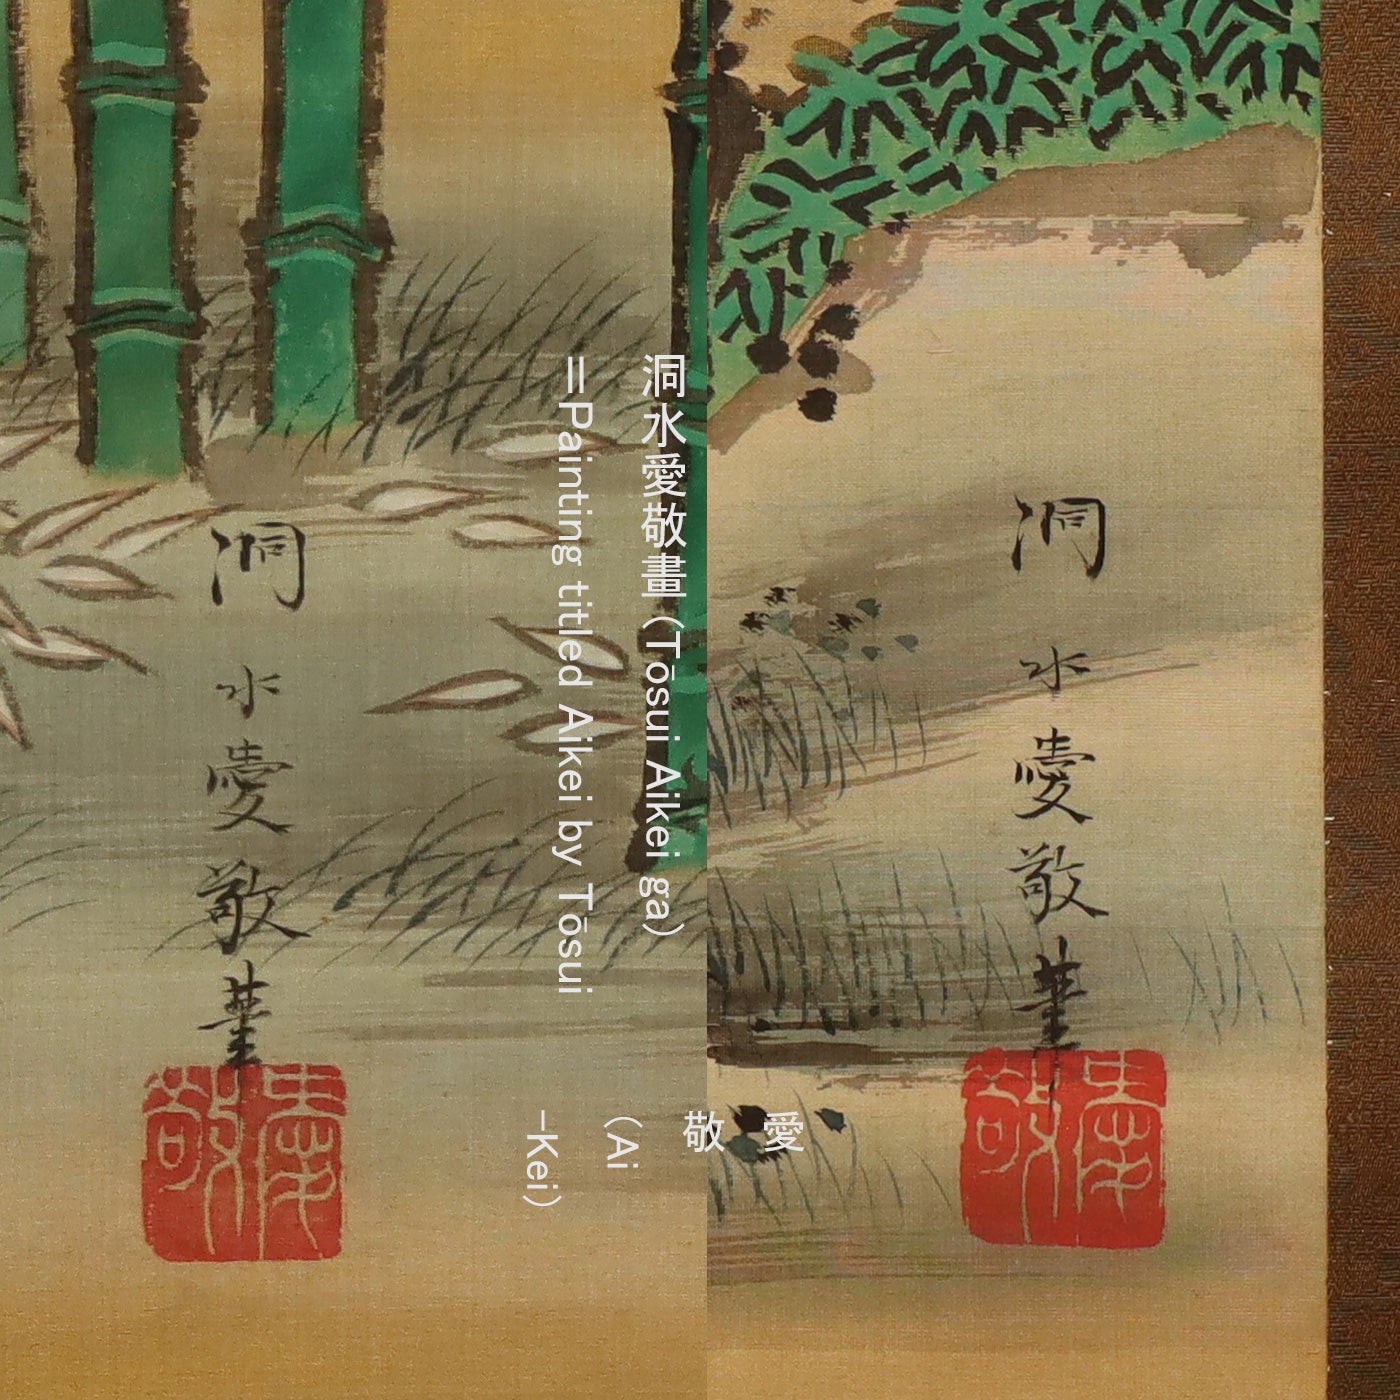 洞水愛敬筆
愛敬
洞水愛敬畫（Tōsui Aikei ga）
＝Painting titled Aikei by Tōsui
愛
敬
（Ai
-Kei）
洞水愛敬筆
愛敬